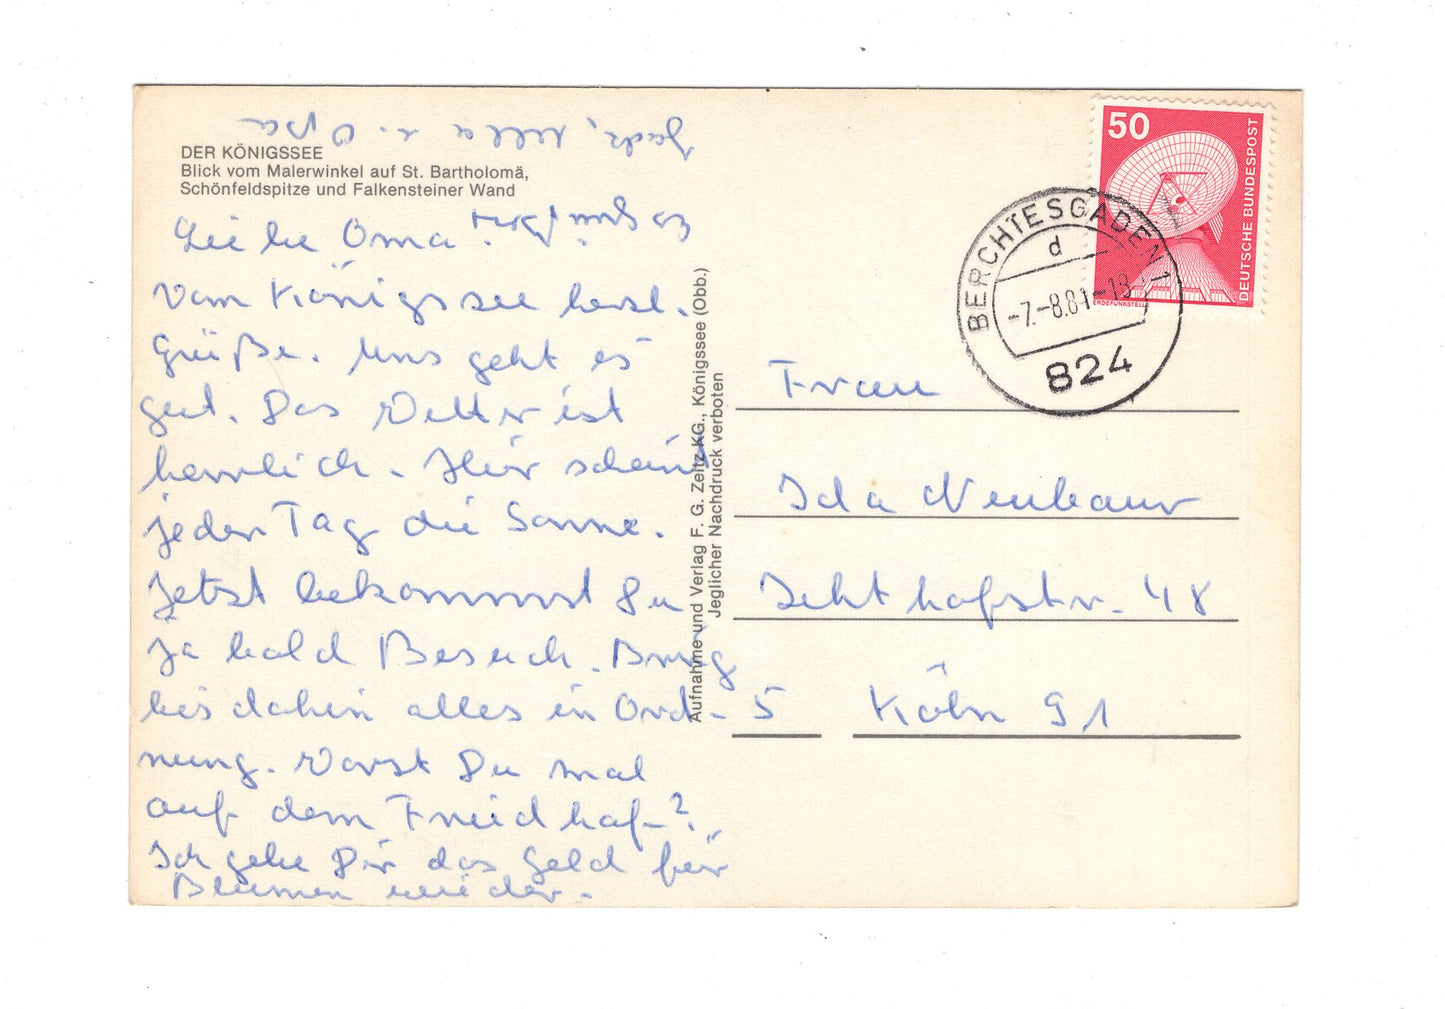 DER KÖNIGSSEE
Blick vom Malerwinkel auf St. Bartholomä,
Schönfeldspitze und Falkensteiner Wand
Liebe Oma!
Vom Königssee herzl.
Grüße. Uns geht es
gut. Das Wetter ist
herrlich. Hier scheint
jeden Tag die Sonne.
Jetzt bekommst Du
ja bald Besuch. Bring
bis dahin alles in Ord-
nung. Warst Du mal
auf dem Friedhof?
Ich gebe Dir das Geld für
Blumen wieder.
u. Opa
Aufnahme und Verlag F. G. Zeitz KG., Königssee (Obb.)
Jeglicher Nachdruck verboten
50
DEUTSCHE BUNDESPOST
ERDEFUNKSTELLE
BERCHTESGADEN 1
d
-7.-8.81-18
824
Frau
Ida Neubaur
48
5 Köln 91